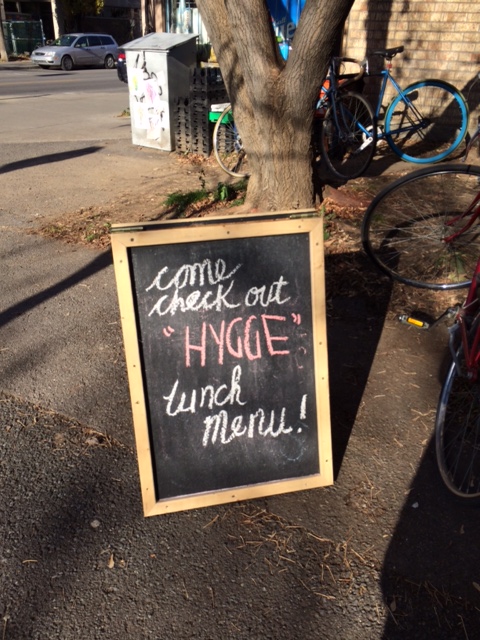 come
check out
"HYGGE"
lunch
menu!